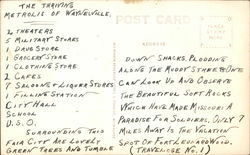 THE THRIVING
METROLIS OF WAYNESVILLE.
2 THEATERS
5 MILITARY STORES
1 DRUG STORE
1 GROCERY STORE
1 CLOTHING STORE
2 CAFES
7 SALOONS & LIQUOR STORES
1 FILLING STATION
CITY HALL
SCHOOL
U.S.O.
SURROUNDING THIS
FAIR CITY ARE LOVELY
GREEN TREES AND TUMBLE
POST CARD
ADDRESS
DOWN SHACKS. PLODDING
ALONG THE MUDDY STREETS ONE
CAN LOOK UP AND OBSERVE
THE BEAUTIFUL SOFT ROCKS
WHICH HAVE MADE MISSOURI A
PARADISE FOR SOLDIERS. ONLY 7
MILES AWAY IS THE VACATION
SPOT OF FORT LEONARD WOOD.
(TRAVELOGE NO. 1)